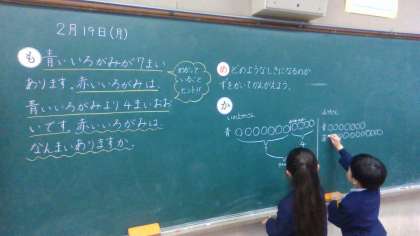 2月19日(月)
も 青いいろがみが7まい
あります。赤いいろがみは、
青いいろがみより4まいおお
いです。赤いいろがみは
なんまいありますか。
わかって
いること
ヒント!!
め どのようなしきになるのか
ずをかいてかんがえよう。
か
青
4
青